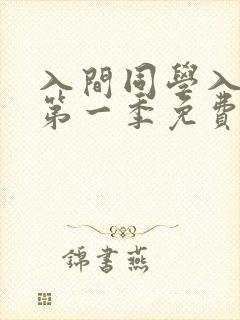 入間同學入
第一季免費
錦書燕